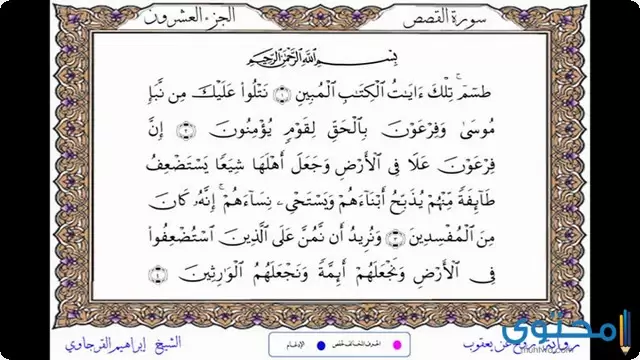 سورة القصص
الجزء العشرون
بِسْمِ اللَّهِ الرَّحْمَٰنِ الرَّحِيمِ
طسٓمٓ ۚ تِلْكَ ءَايَٰتُ الْكِتَٰبِ الْمُبِينِ ١ نَتْلُوا۟ عَلَيْكَ مِن نَّبَإِ
مُوسَىٰ وَفِرْعَوْنَ بِالْحَقِّ لِقَوْمٍ يُؤْمِنُونَ ٢ إِنَّ
فِرْعَوْنَ عَلَا فِى الْأَرْضِ وَجَعَلَ أَهْلَهَا شِيَعًا يَسْتَضْعِفُ
طَآئِفَةً مِّنْهُمْ يُذَبِّحُ أَبْنَآءَهُمْ وَيَسْتَحْىِۦ نِسَآءَهُمْ ۚ إِنَّهُۥ كَانَ
مِنَ الْمُفْسِدِينَ ٣ وَنُرِيدُ أَن نَّمُنَّ عَلَى الَّذِينَ اسْتُضْعِفُوا۟
فِى الْأَرْضِ وَنَجْعَلَهُمْ أَئِمَّةً وَنَجْعَلَهُمُ الْوَٰرِثِينَ ٤
عن يعقوب
الحرف المخالف لحفص
الإدغام
الشيخ إبراهيم القرجاوي
محتوى